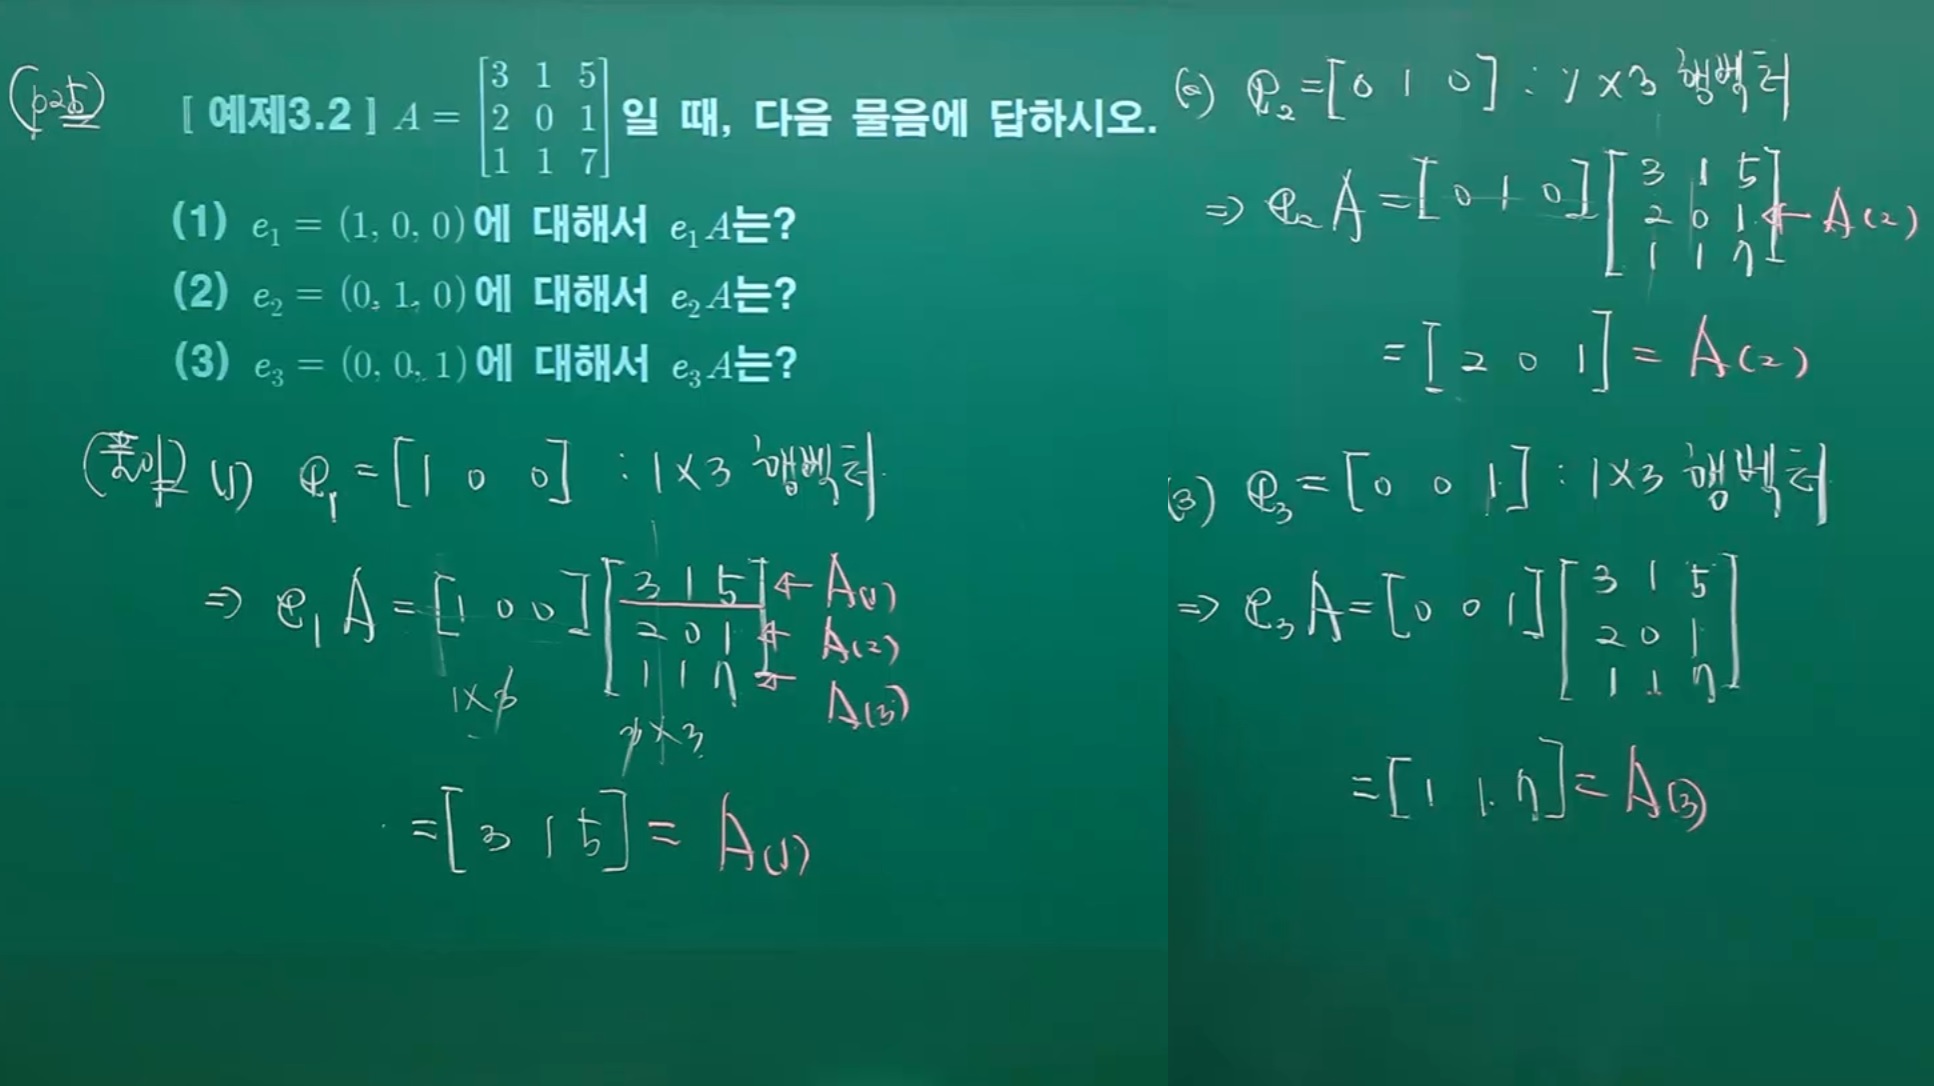 (p25)
[예제3.2] A = [3 1 5
2 0 1
1 1 7] 일 때, 다음 물음에 답하시오.
(1) e₁ = (1, 0, 0)에 대해서 e₁A는?
(2) e₂ = (0, 1, 0)에 대해서 e₂A는?
(3) e₃ = (0, 0, 1)에 대해서 e₃A는?
(풀이) (1) e₁ = [1 0 0] : 1×3 행벡터
⇒ e₁A = [1 0 0] [3 1 5 ← A(1)
2 0 1 ← A(2)
1 1 7] ← A(3)
1×3
3×3
= [3 1 5] = A(1)
(2) e₂ = [0 1 0] : 1×3 행벡터
⇒ e₂A = [0 1 0] [3 1 5
2 0 1 ← A(2)
1 1 7]
= [2 0 1] = A(2)
(3) e₃ = [0 0 1] : 1×3 행벡터
⇒ e₃A = [0 0 1] [3 1 5
2 0 1
1 1 7]
= [1 1 7] = A(3)